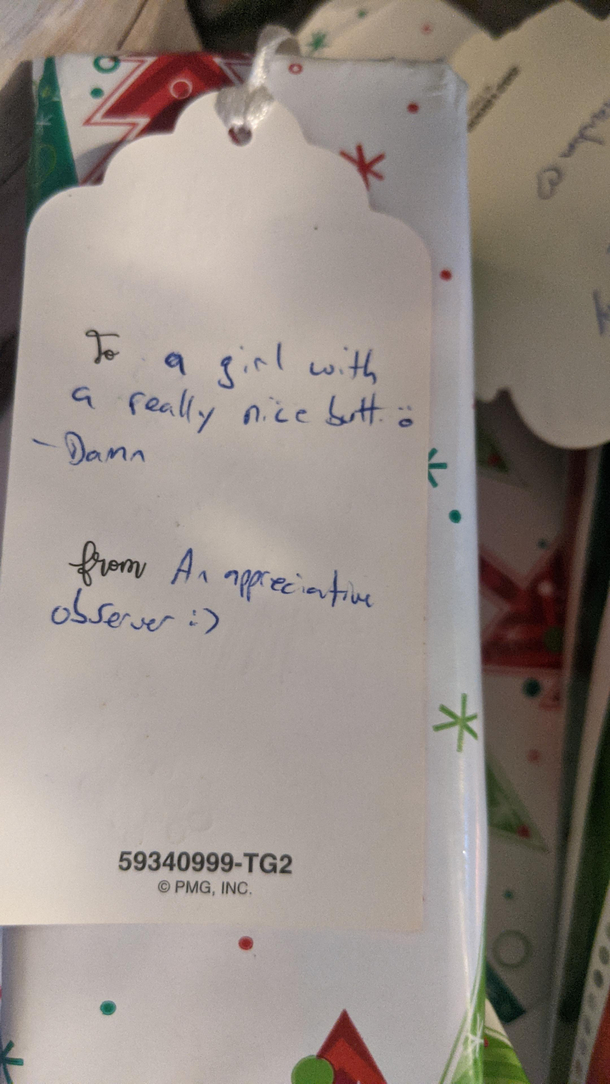 To a girl with
a really nice butt. :o
- Damn
from An appreciative
observer :)
59340999-TG2
© PMG, INC.